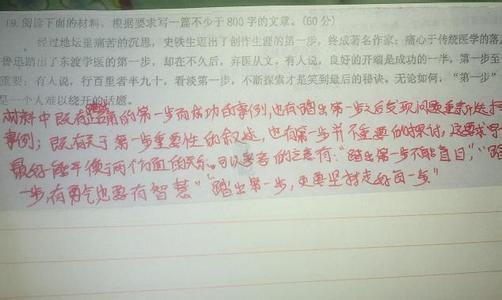 19.阅读下面的材料,根据要求写一篇不少于800字的文章。(60分)
经过地坛里痛苦的沉思,史铁生迈出了创作生涯的第一步,终成著名作家;痛心于传统医学的落
鲁迅踏出了东渡学医的第一步,却在不久后,弃医从文。有人说,良好的开端是成功的一半,第一步至
重要;有人说,行百里者半九十,看淡第一步,不断探索才是笑到最后的秘诀。无论如何,“第一步”
是一个人难以绕开的话题。
材料中既有的第一步而成功的事例,也有踏出第一步之后发现问题重新选择
事例;既有关于第一步重要性的叙述,也有第一步并不重要的探讨,这要求写
最好能平衡了两个方面的关系。可以参考的立意有:“踏出第一步不能盲目”,“踏
步,有勇气也要有智慧”“踏出第一步,更要坚持走好每一步”